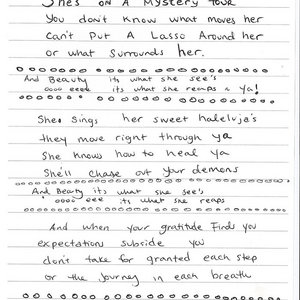 She's ON A MYSTERY TOUR
You don't know what moves her
Can't Put A Lasso Around her
or what surrounds her.
And Beauty its what she see's
oooo eeee its what she reaps n ya!
She sings her sweet haleluja's
they move right through ya
She knows how to heal ya
She'll chase out your demons
And Beauty its what she see's
oooo eee its what she reaps
And when your gratitude Finds you
expectations subside you
don't take for granted each step
or the journey in each breath